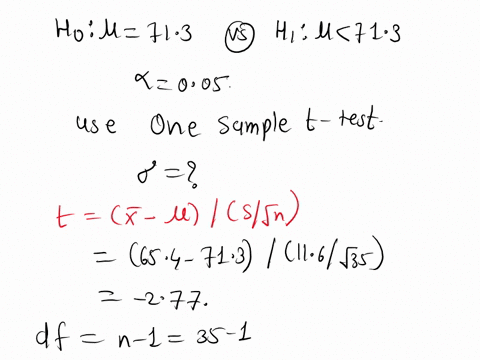 H₀: μ = 71.3 (vs) H₁: μ < 71.3
α = 0.05.
use One sample t-test.
σ = ?
t = (x̄ - μ) / (S/√n)
= (65.4 - 71.3) / (11.6/√35)
= -2.77.
df = n-1 = 35-1